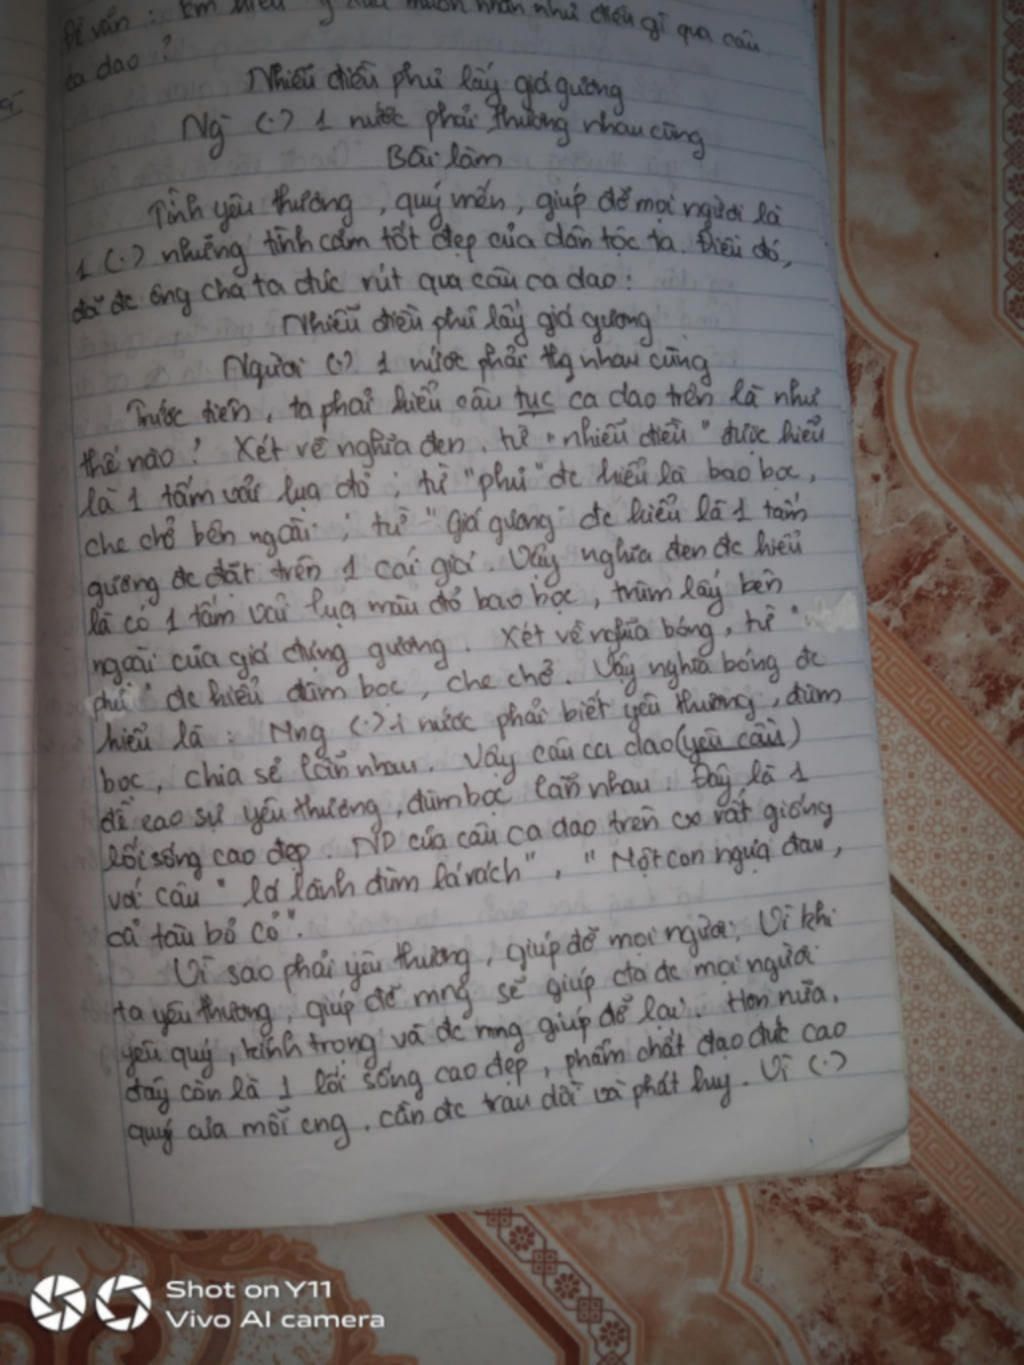 Đề văn: Em hiểu ý muốn nhắn nhủ điều gì qua câu
ca dao?
Nhiễu điều phủ lấy giá gương
Ng (.) 1 nước phải thương nhau cùng
Bài làm
Tình yêu thương, quý mến, giúp đỡ mọi người là
1 (.) những tình cảm tốt đẹp của dân tộc ta. Điều đó,
đã đc ông cha ta đúc rút qua câu ca dao:
Nhiễu điều phủ lấy giá gương
Người (.) 1 nước phải thg nhau cùng
Trước tiên, ta phải hiểu câu tục ca dao trên là như
thế nào? Xét về nghĩa đen, từ "nhiễu điều" được hiểu
là 1 tấm vải lụa đỏ; từ "phủ" đc hiểu là bao bọc,
che chở bên ngoài; từ "Giá gương" đc hiểu là 1 tấm
gương đc đặt trên 1 cái giá. Vậy nghĩa đen đc hiểu
là có 1 tấm vải lụa màu đỏ bao bọc, trùm lấy bên
ngoài của giá đựng gương. Xét về nghĩa bóng, từ "
phủ" đc hiểu đùm bọc, che chở. Vậy nghĩa bóng đc
hiểu là: Mng (.) 1 nước phải biết yêu thương, đùm
bọc, chia sẻ lẫn nhau. Vậy câu ca dao (yêu cầu)
đề cao sự yêu thương, đùm bọc lẫn nhau. Đây là 1
lối sống cao đẹp. ND của câu ca dao trên rất giống
với câu "lá lành đùm lá rách", "Một con ngựa đau,
cả tàu bỏ cỏ".
Vì sao phải yêu thương, giúp đỡ mọi người; Vì khi
ta yêu thương, giúp đỡ mng sẽ giúp cta đc mọi người
yêu quý, kính trọng và đc mng giúp đỡ lại. Hơn nữa,
đây còn là 1 lối sống cao đẹp, phẩm chất đạo đức cao
quý của mỗi cng, cần đc trau dồi và phát huy. Vì (.)
Shot on Y11
Vivo AI camera